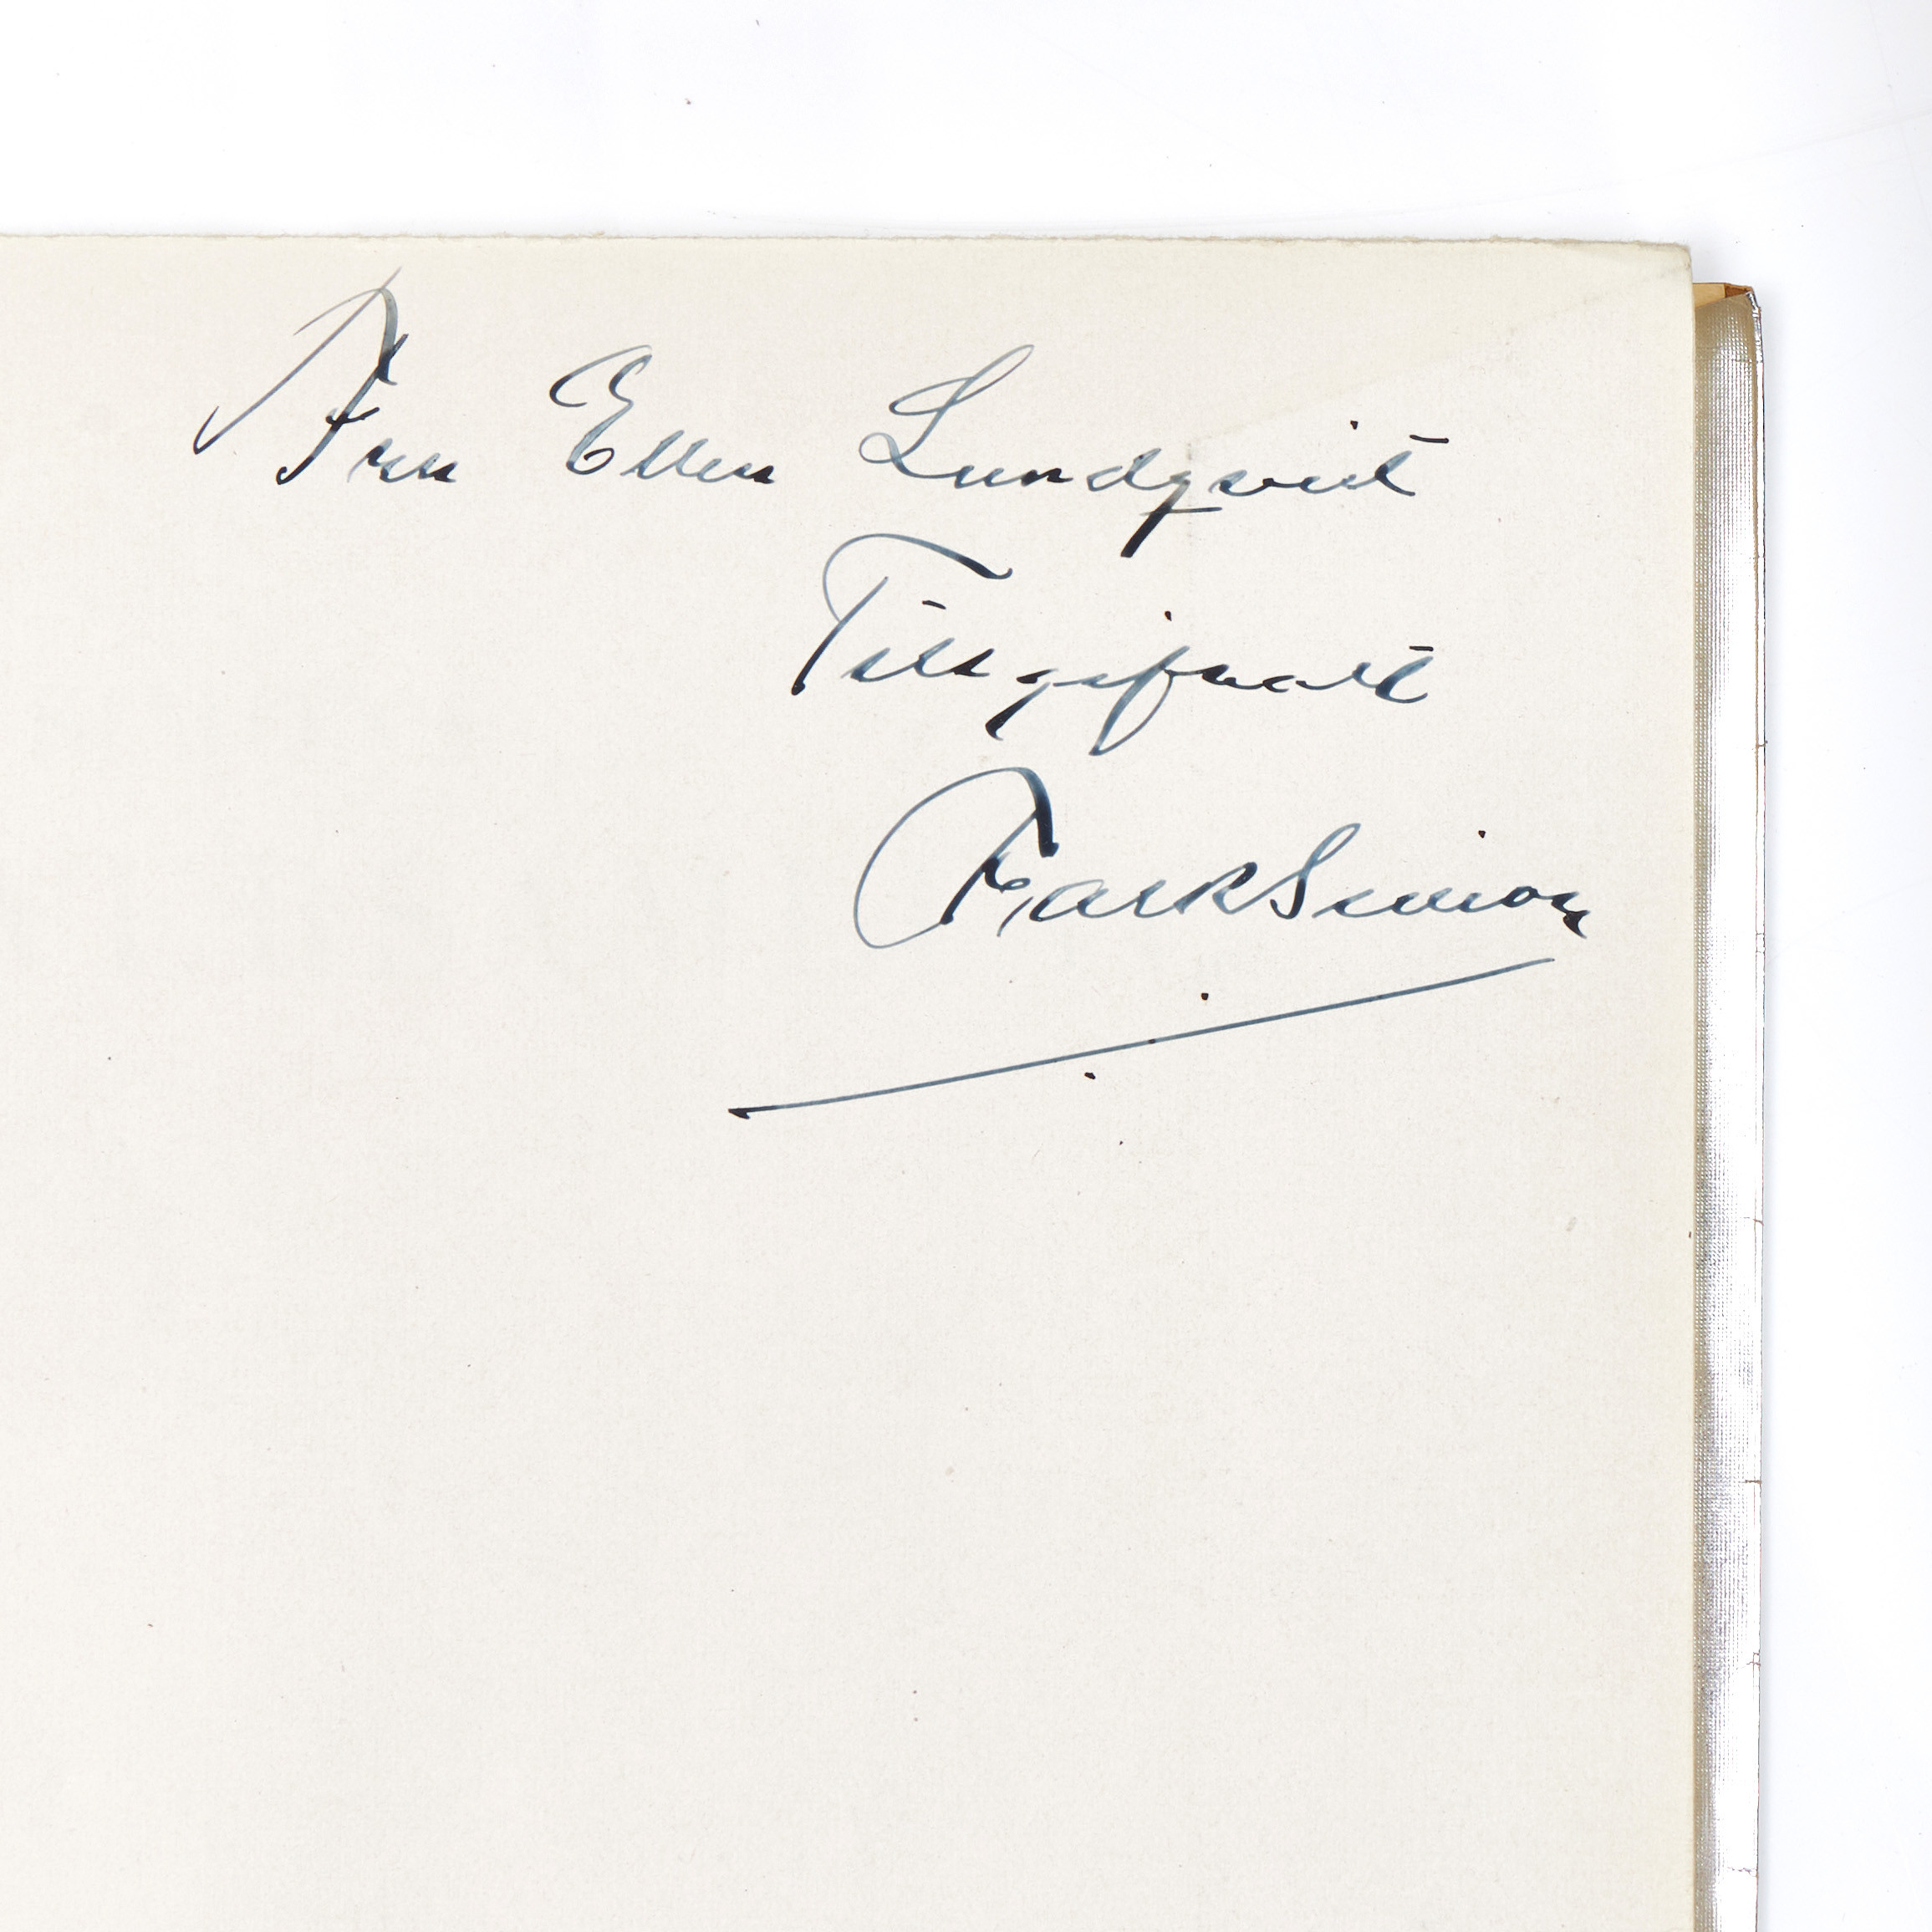 Fru Ellen Lundqvist
Tillgifnast
FalkSimon